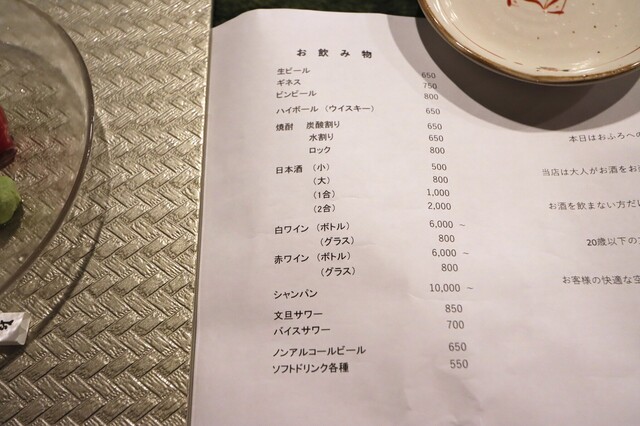 お飲み物
生ビール 650
ギネス 750
ビンビール 800
ハイボール（ウイスキー） 650
焼酎 炭酸割り 650
水割り 650
ロック 800
日本酒（小） 500
（大） 800
（1合） 1,000
（2合） 2,000
白ワイン（ボトル） 6,000 ~
（グラス） 800
赤ワイン（ボトル） 6,000 ~
（グラス） 800
シャンパン 10,000 ~
文旦サワー 850
バイスサワー 700
ノンアルコールビール 650
ソフトドリンク各種 550
本日はおふろへの
当店は大人がお酒をお
お酒を飲まない方だけ
20歳以下の
お客様の快適な空